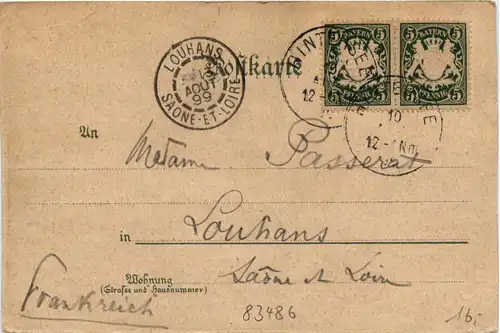 BAYERN BAYERN
5 5 5 5
PFENNIG
LOUHANS
AOUT
99
SAONE-ET-LOIRE
Postkarte
HINT SEE
12 -
10
12 - Nm
An
Madame Passerat
in Louhans
Wohnung
(Straße und Hausnummer)
Saône et Loire
Frankreich
83486
16,-